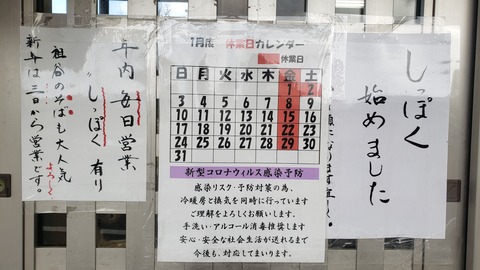 年内毎日営業
"しっぽく有り
祖谷のそばも大人気
新年は三日から営業です。
よろしく
1月度 休業日カレンダー
休業日
日 月 火 水 木 金 土
1 2
3 4 5 6 7 8 9
10 11 12 13 14 15 16
17 18 19 20 21 22 23
24 25 26 27 28 29 30
31
新型コロナウィルス感染予防
感染リスク・予防対策の為、
冷暖房と換気を同時に行っています
ご理解をよろしくお願いします。
手洗い・アルコール消毒推奨します
安心・安全な社会生活が送れるまで
今後も、対応してまいります。
しっぽく
始めました